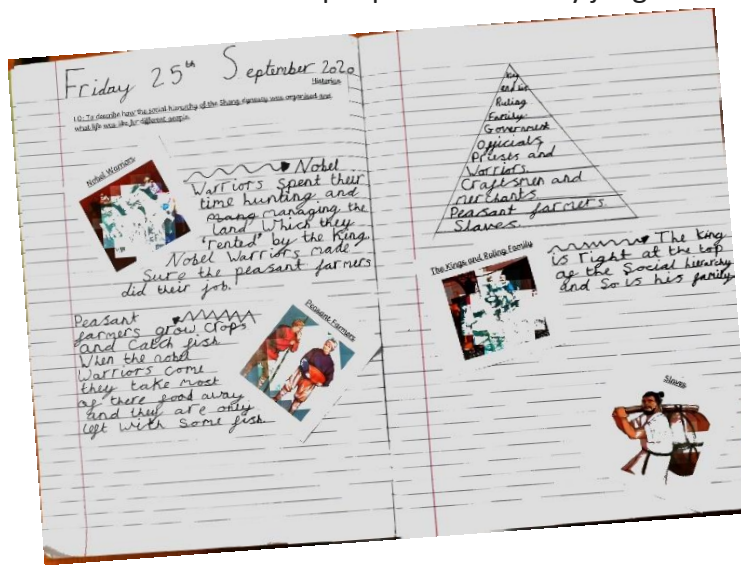 Friday 25th September 2020
Historian
LO: To describe how the social hierarchy of the Shang dynasty was organised and
what life was like for different people.
Nobel Warriors
Nobel
Warriors Spent their
time hunting and
managing the
land Which they
'rented' by the King.
Nobel Warriors made
Sure the peasant farmers
did their job.
Peasant
farmers grow crops
and Catch fish
When the nobel
Warriors come
they take most
of there food away
and they are only
left with Some fish.
Peasant Farmers
King
and his
Ruling
Family
Government
Officials
Prieses and
Worriors
Craftsmen and
merchants
Peasant farmers
Slaves
The Kings and Ruling Family
The King
is right at the top
of the Social hierarchy
and So is his family
Slaves